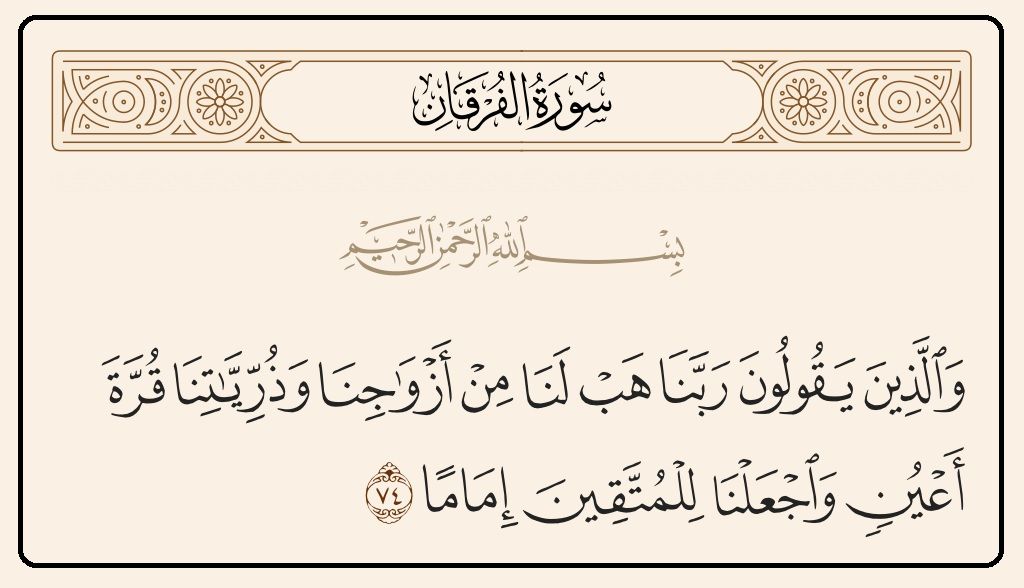 سُورَةُ الفُرْقَانِ
بِسْمِ ٱللَّهِ ٱلرَّحْمَٰنِ ٱلرَّحِيمِ
وَٱلَّذِينَ يَقُولُونَ رَبَّنَا هَبْ لَنَا مِنْ أَزْوَٰجِنَا وَذُرِّيَّٰتِنَا قُرَّةَ
أَعْيُنٍ وَٱجْعَلْنَا لِلْمُتَّقِينَ إِمَامًا ٧٤